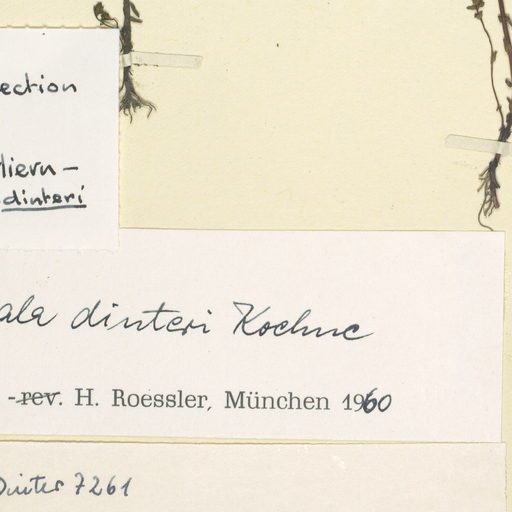 ection
Hiern –
dinteri
ala dinteri Koehne
-rev. H. Roessler, München 1960
Dinter 7261